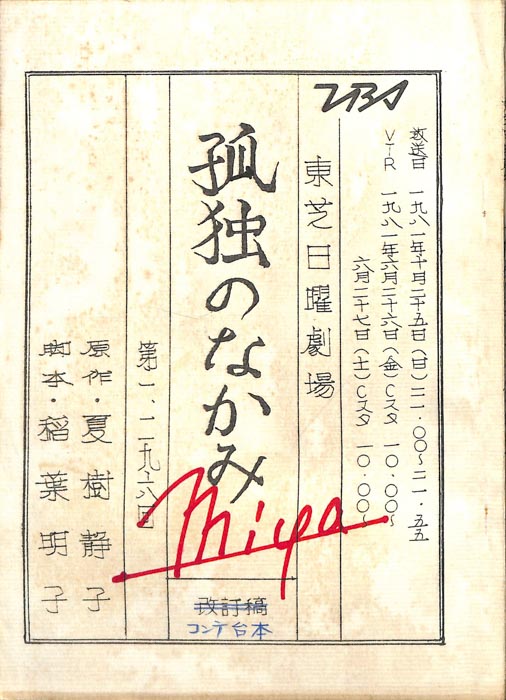 TBS
放送日 一九八一年十月二十五日(日)二一・〇〇〜二一・五五
VTR 一九八一年六月二十六日(金)Cスタ 一〇・〇〇〜
六月二十七日(土)Cスタ 一〇・〇〇〜
東芝日曜劇場
孤独のなかみ
改訂稿
コンテ台本
第一、二九六回
原作・夏樹静子
脚本・稲葉明子
Miya